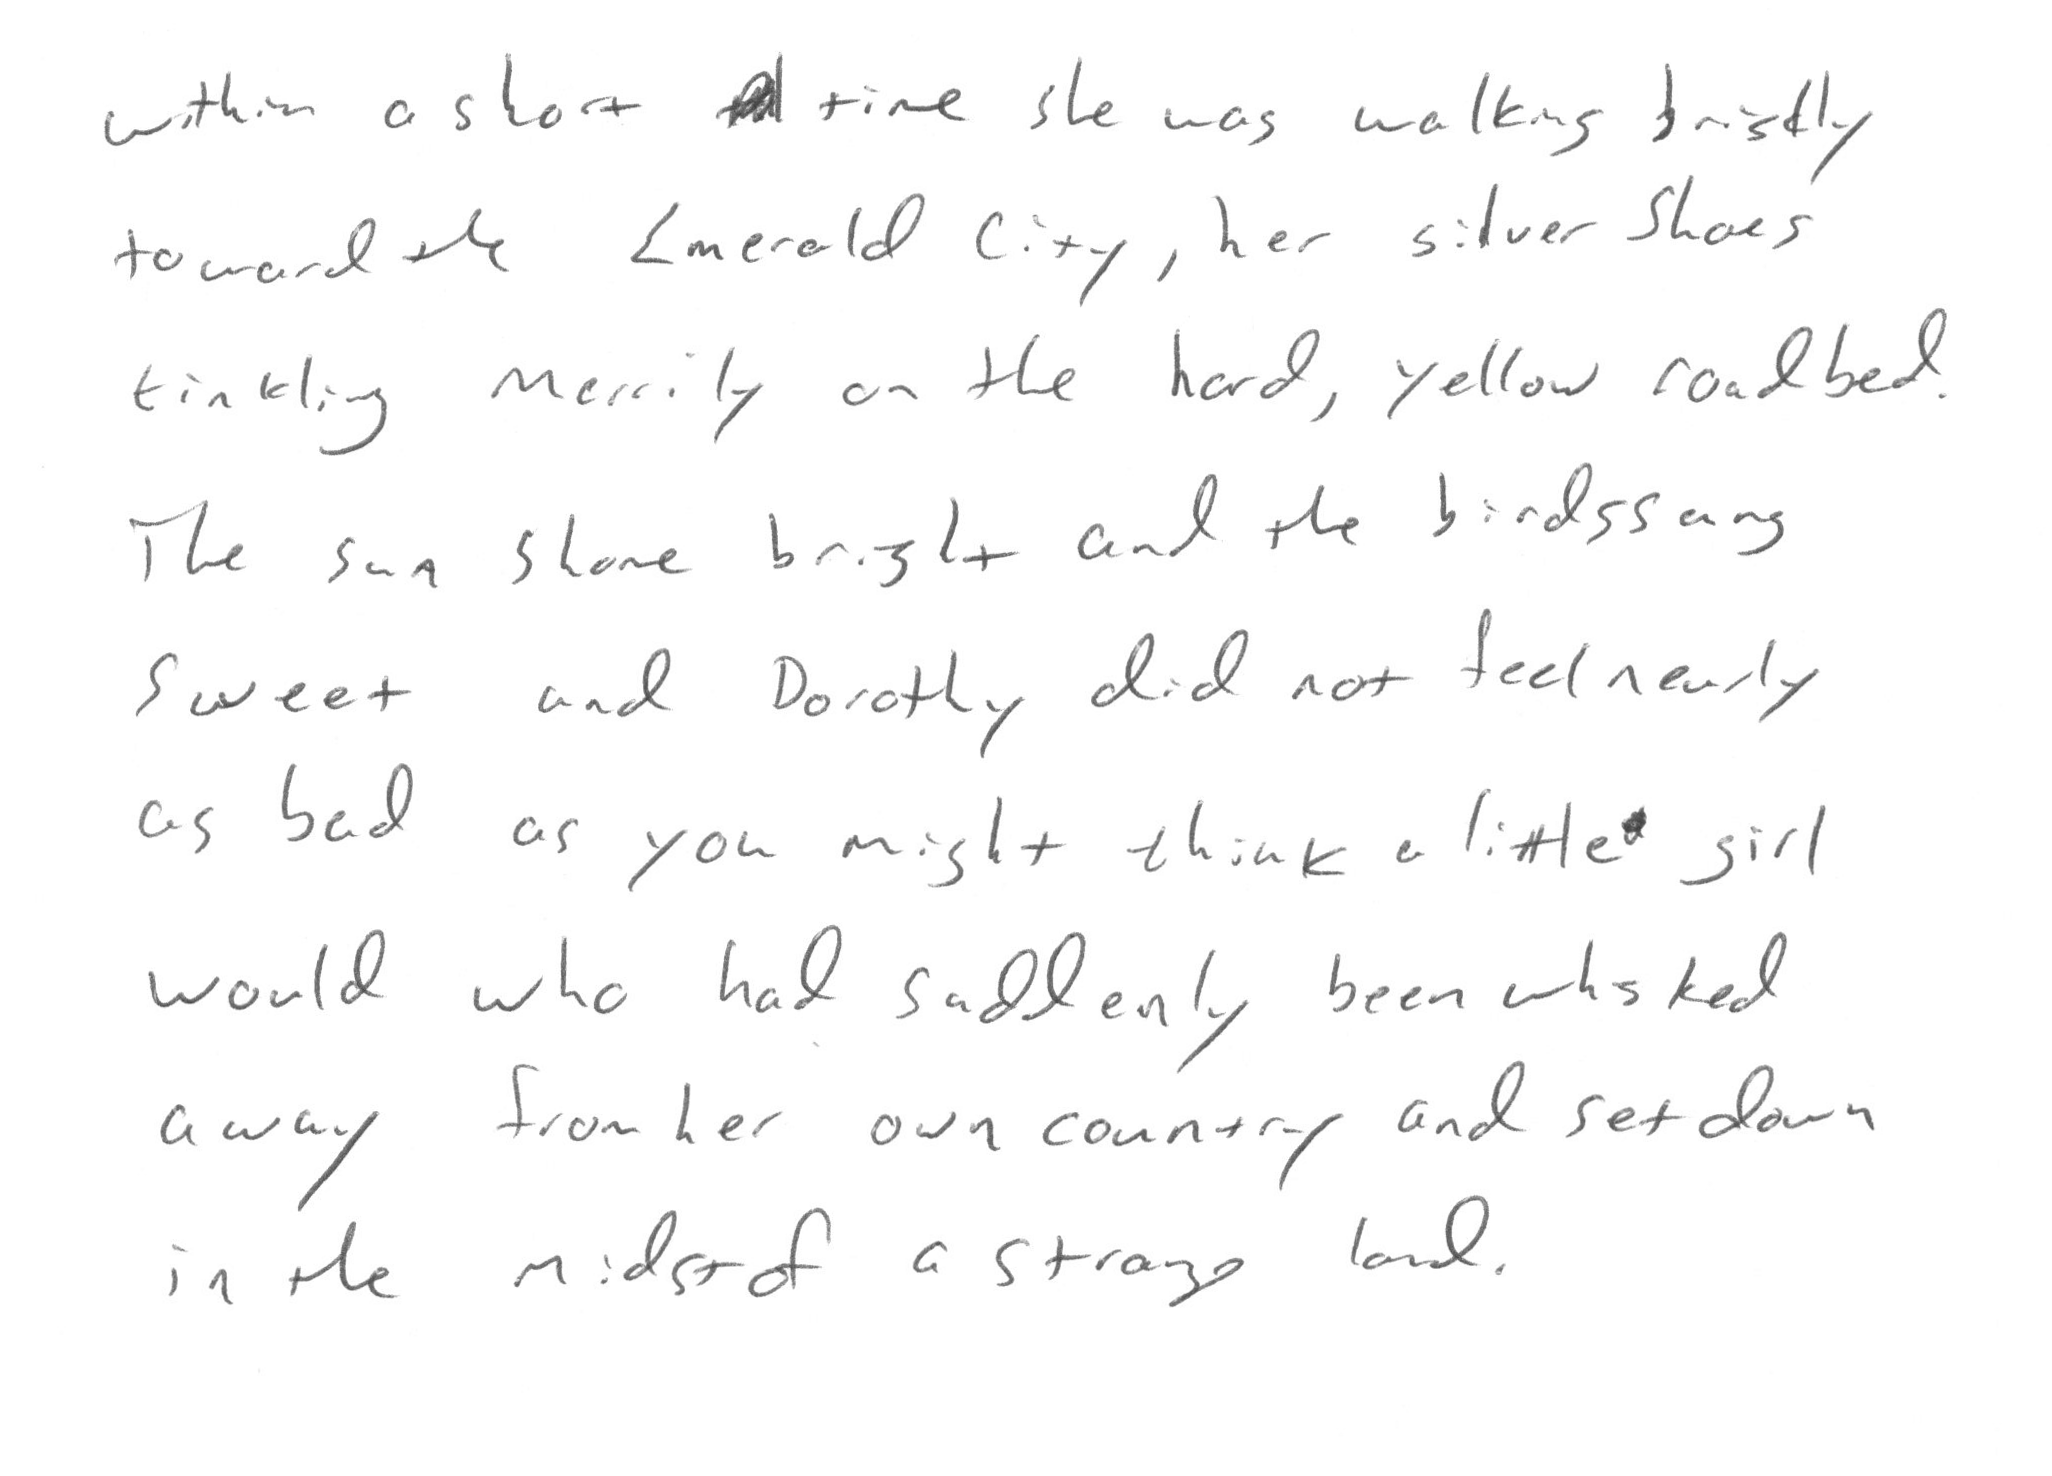 within a short time she was walking briskly
toward the Emerald City, her silver Shoes
tinkling merrily on the hard, yellow roadbed.
The sun shone bright and the birds sang
sweet and Dorothy did not feel nearly
as bad as you might think a little girl
would who had suddenly been whisked
away from her own country and set down
in the midst of a strange land.